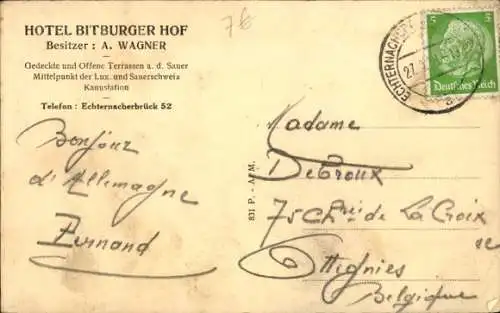 HOTEL BITBURGER HOF
Besitzer : A. WAGNER
Gedeckte und Offene Terrassen a. d. Sauer
Mittelpunkt der Lux. und Sauerschweiz
Kanustation
Telefon : Echternacherbrück 52
7€
Bonjour
d'Allemagne
Fernand
831 P. - A. M.
ECHTERNACHER
27.
a
5 5
Deutsches Reich
Madame
Debroux
75 Ch de La Croix
Ottignies
Belgique